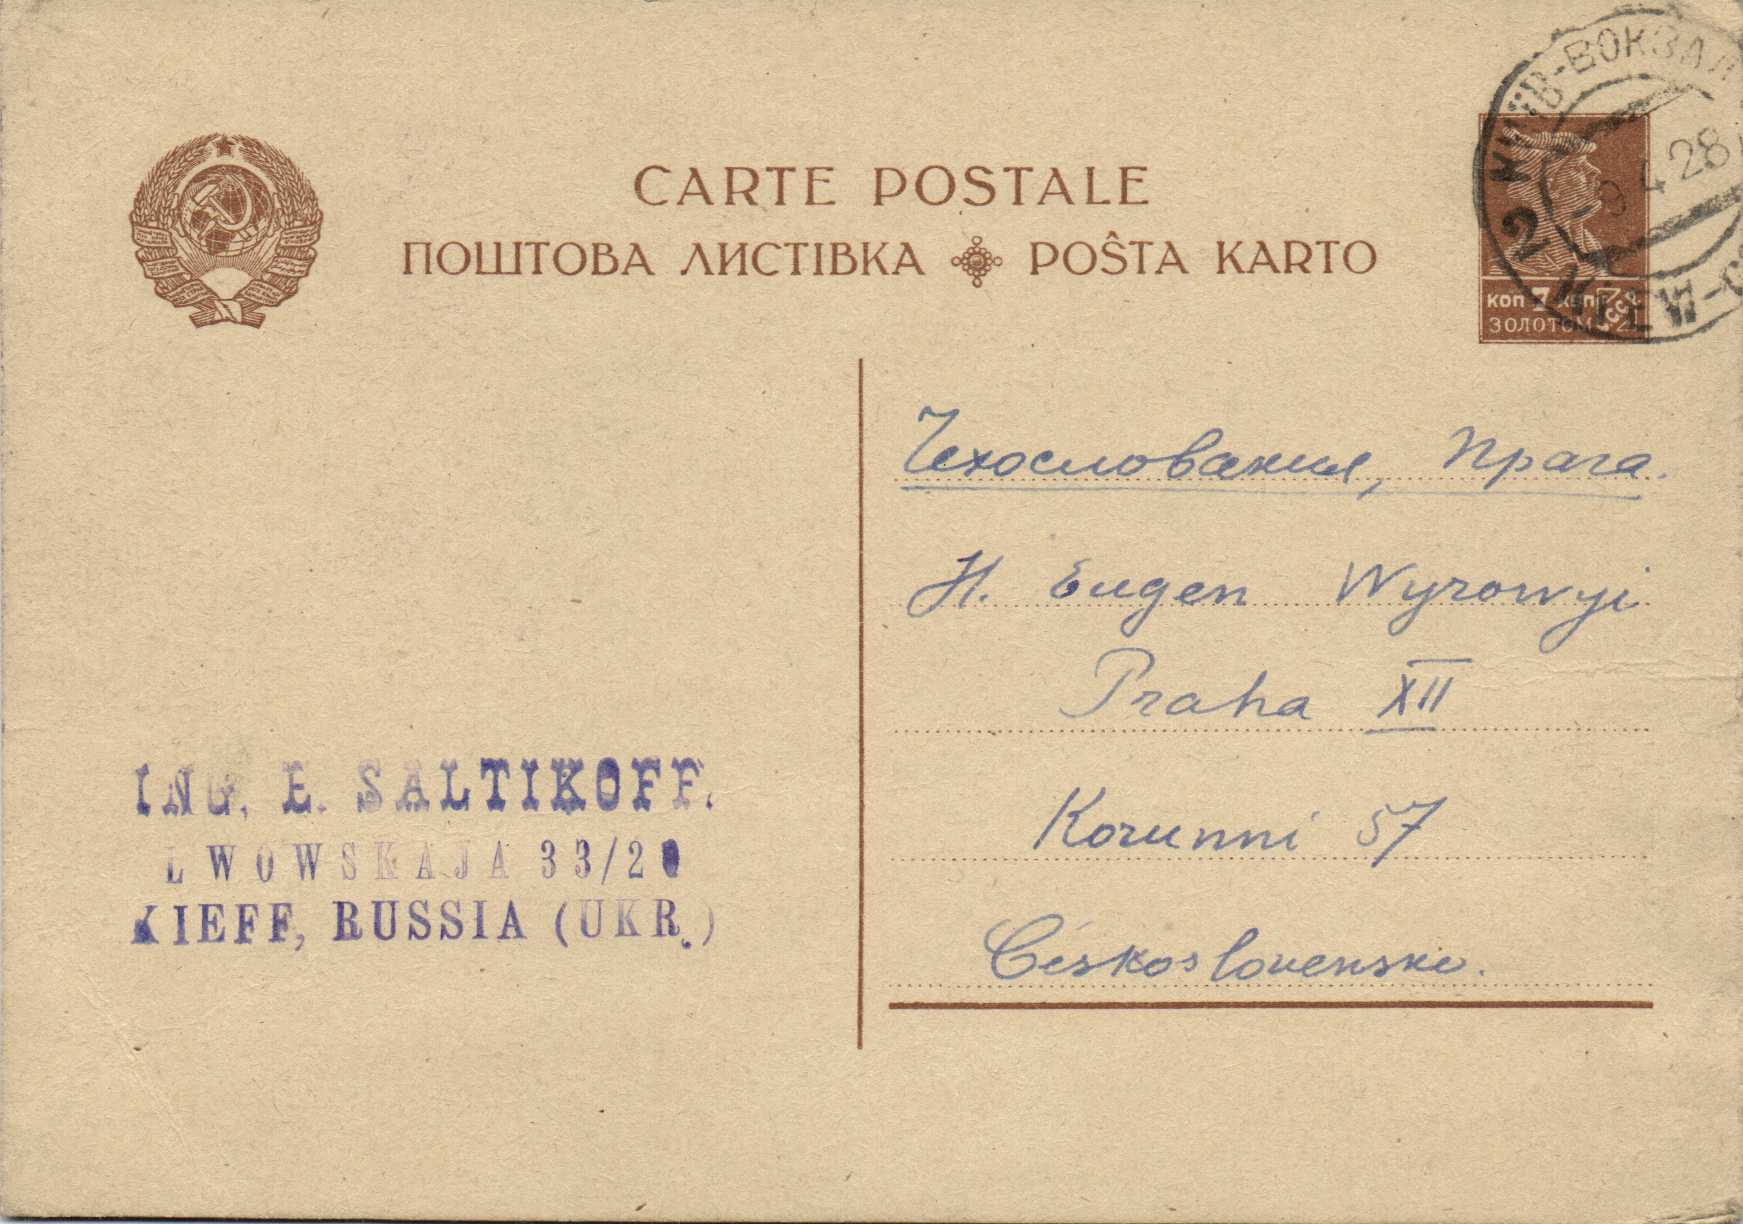 CARTE POSTALE
ПОШТОВА ЛИСТІВКА POŜTA KARTO
КИЇВ-ВОКЗАЛ
4 28
2
KIEW-
КОП 7 КОП
ЗОЛОТОМ
СССР
Чехословакия, Прага.
H. Eugen Wyrowyi
Praha XII
Korunni 57
Ceskoslovenske.
ING. E. SALTIKOFF.
LWOWSKAJA 33/20
KIEFF, RUSSIA (UKR.)